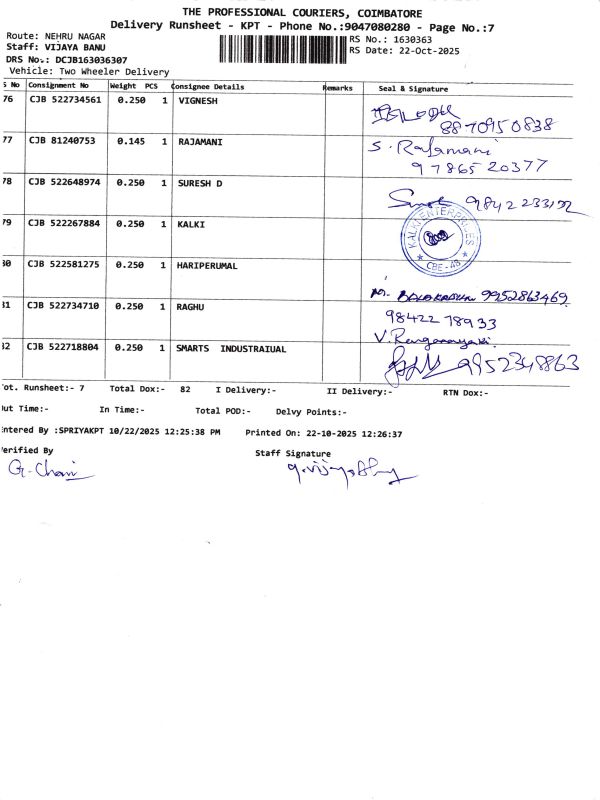 THE PROFESSIONAL COURIERS, COIMBATORE
Delivery Runsheet - KPT - Phone No.:9047080280 - Page No.:7
Route: NEHRU NAGAR
RS No.: 1630363
Staff: VIJAYA BANU
RS Date: 22-Oct-2025
DRS No.: DCJB163036307
Vehicle: Two Wheeler Delivery
S No Consignment No Weight PCS Consignee Details Remarks Seal & Signature
76 CJB 522734561 0.250 1 VIGNESH
8870950838
77 CJB 81240753 0.145 1 RAJAMANI S. Rajamani
97865 20377
78 CJB 522648974 0.250 1 SURESH D
79 CJB 522267884 0.250 1 KALKI KALKI ENTERPRISES CBE-43
80 CJB 522581275 0.250 1 HARIPERUMAL
9952863469
81 CJB 522734710 0.250 1 RAGHU 98422 78933
V. Ranganayaki
82 CJB 522718804 0.250 1 SMARTS INDUSTRAIUAL 9952348863
ot. Runsheet:- 7 Total Dox:- 82 I Delivery:- II Delivery:- RTN Dox:-
ut Time:- In Time:- Total POD:- Delvy Points:-
ntered By :SPRIYAKPT 10/22/2025 12:25:38 PM Printed On: 22-10-2025 12:26:37
erified By
Staff Signature